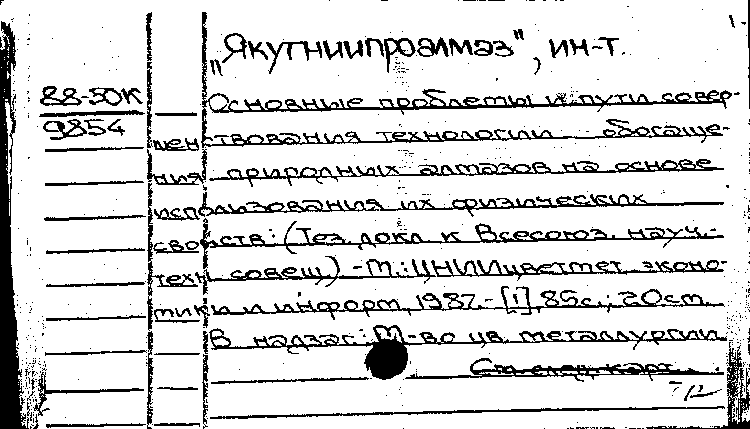 "Якутниипроалмаз", ин-т.
88-50К
9854
Основные проблемы и пути совер-
шенствования технологии обогаще-
ния природных алмазов на основе
использования их физических
свойств: (Тез. докл. к Всесоюз. науч.-
техн. совещ.) -М.: ЦНИИцветмет эконо-
мики и информ, 1987.- [1], 85с.; 20см.
В надзаг.: М-во цв. металлургии
См след. карт.